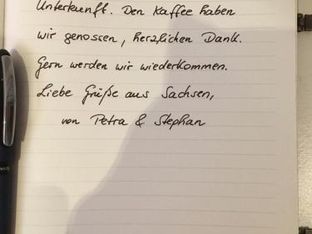 Unterkunft. Den Kaffee haben
wir genossen, herzlichen Dank.
Gern werden wir wiederkommen.
Liebe Grüße aus Sachsen,
von Petra & Stephan